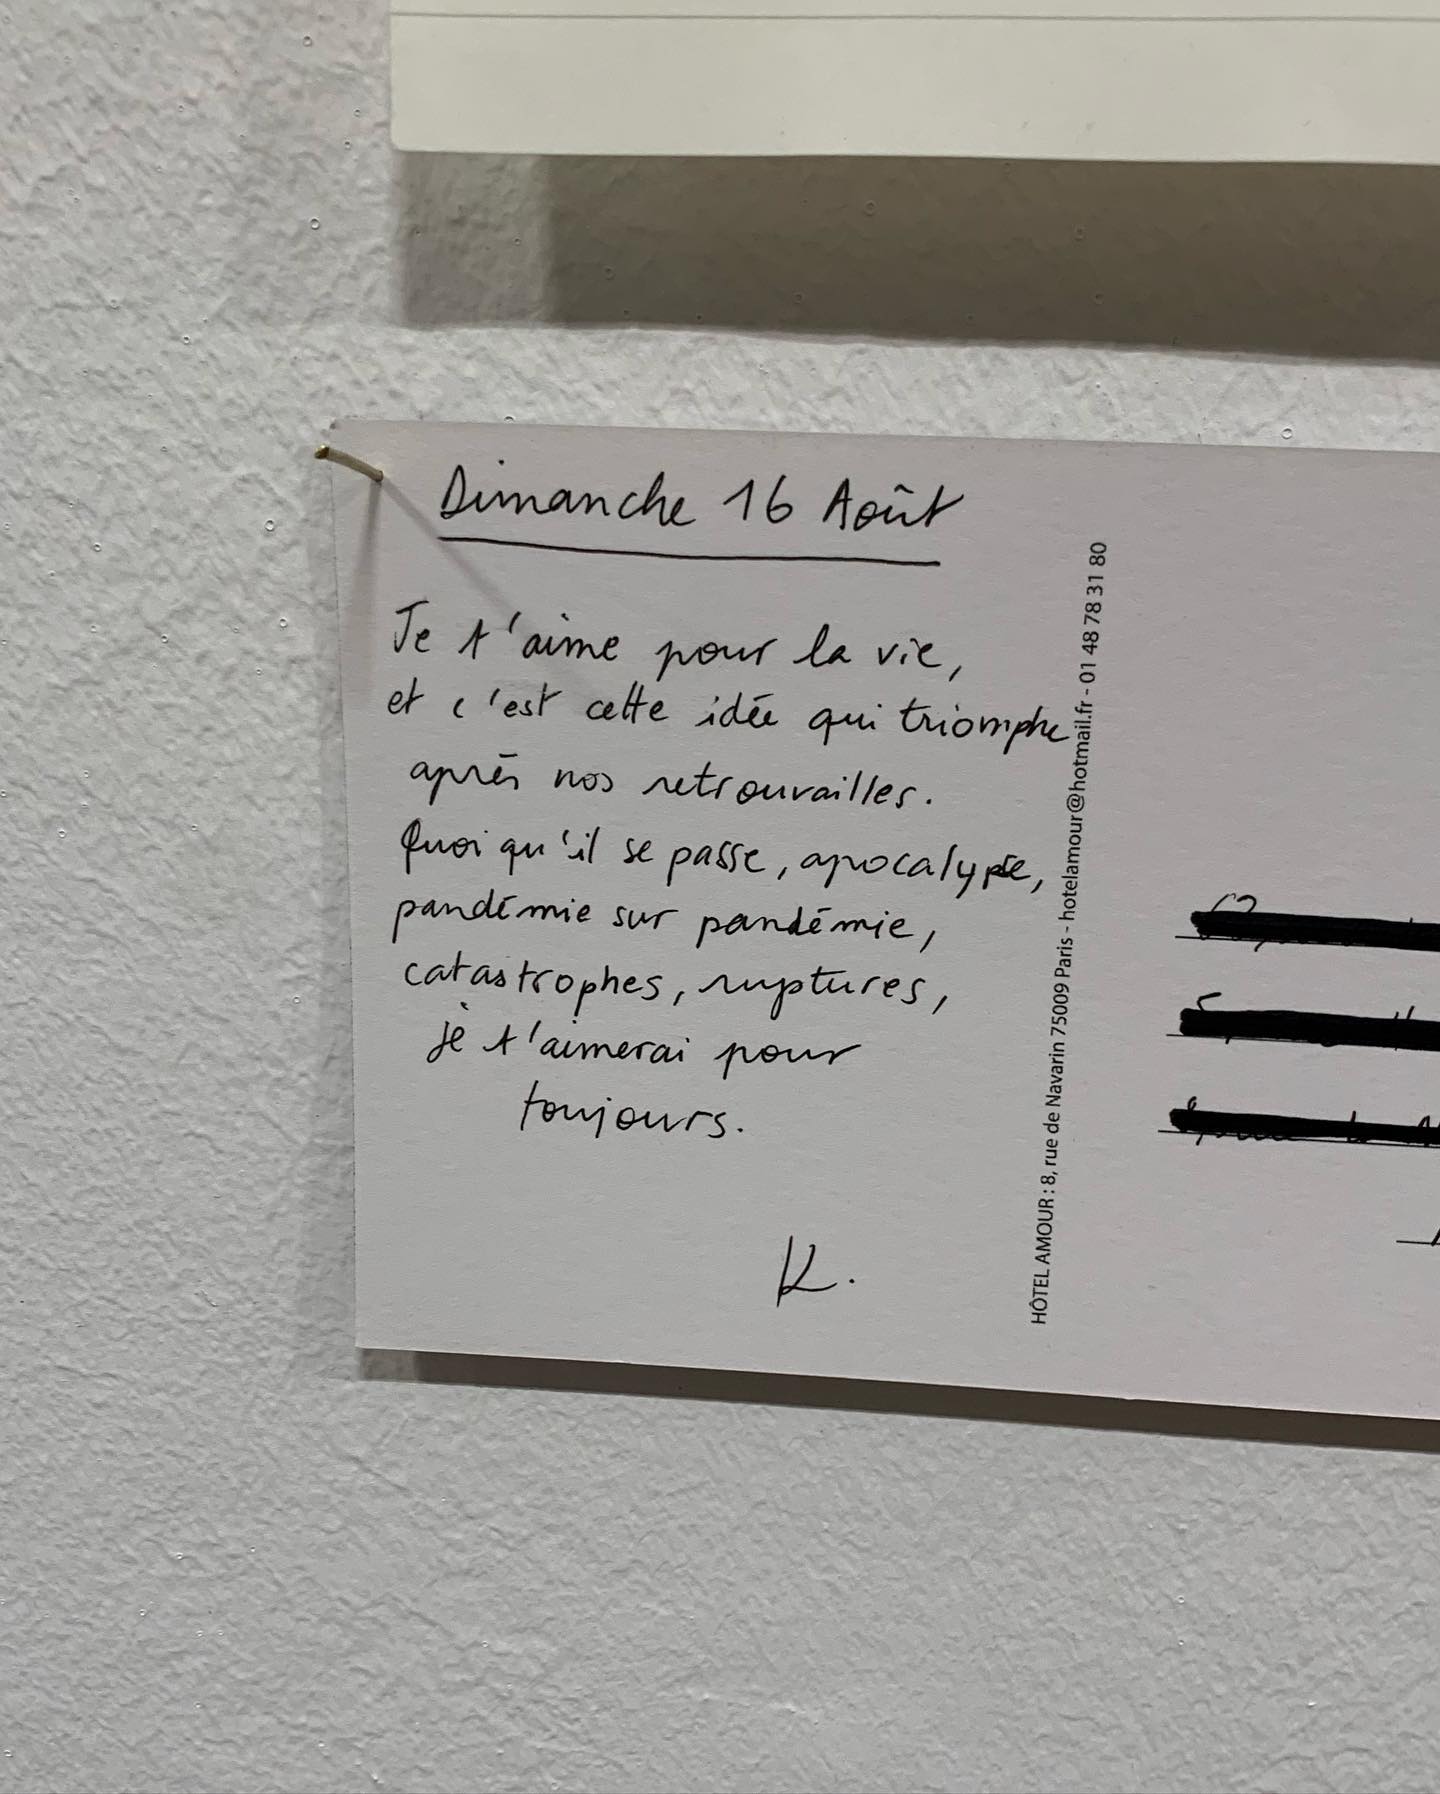 Dimanche 16 Août
Je t'aime pour la vie,
et c'est cette idée qui triomphe
après nos retrouvailles.
Quoi qu'il se passe, apocalypse,
pandémie sur pandémie,
catastrophes, ruptures,
je t'aimerai pour
toujours.
K.
HÔTEL AMOUR : 8, rue de Navarin 75009 Paris - hotelamour@hotmail.fr - 01 48 78 31 80